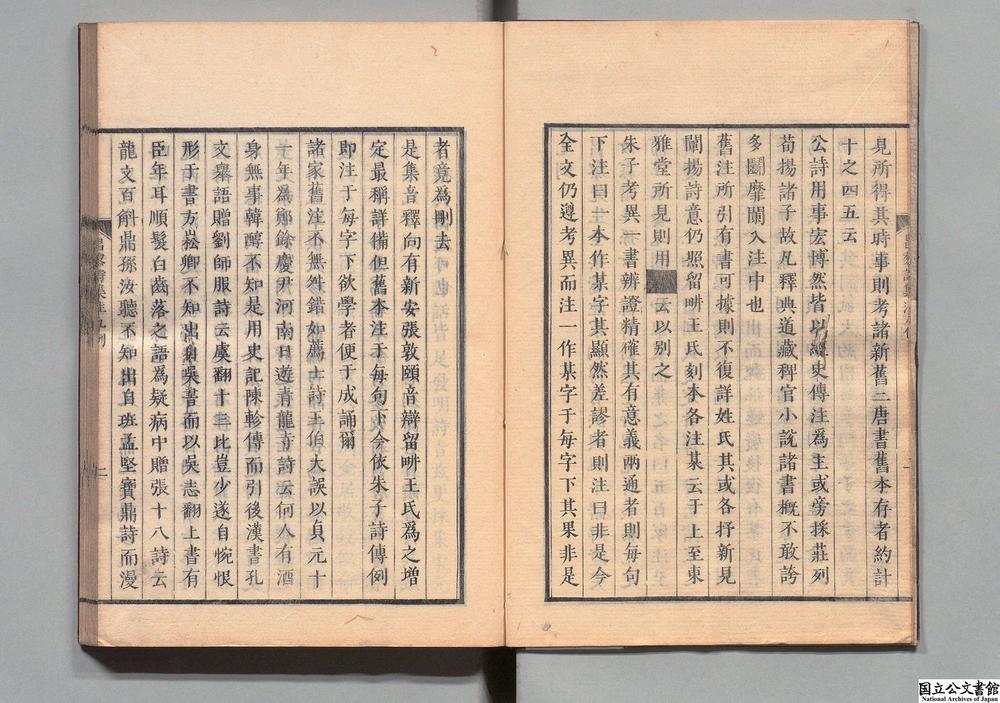 見所得其時事則考諸新舊二唐書舊本存者約計
十之四五云
公詩用事宏博然皆以經史傳注爲主或旁採莊列
荀揚諸子故凡釋典道藏稗官小說諸書槪不敢誇
多鬭靡闌入注中也
舊注所引有書可據則不復詳姓氏其或各抒新見
闡揚詩意仍照留畊王氏刻本各注某云于上至東
雅堂所見則用云以别之
朱子考異一書辨證精確其有意義兩通者則每句
下注曰一本作某字其顯然差謬者則注曰非是今
全文仍遵考異而注一作某字于每字下其果非是
者竟為刪去
是集音釋向有新安張敦頤音辯留畊王氏爲之增
定最稱詳備但舊本注于每句下今依朱子詩傳例
即注于每字下欲學者便于成誦爾
諸家舊注不無舛錯如薦士詩王伯大誤以貞元十
十年爲鄭餘慶尹河南日遊青龍寺詩云何人有酒
身無事韓醇不知是用史記陳軫傳而引後漢書孔
文舉語贈劉師服詩云虞翻十三比豈少遂自惋恨
形于書方崧卿不知出自吳書而以吳志翻上書有
臣年耳順髮白齒落之語爲疑病中贈張十八詩云
龍文百斛鼎孫汝聽不知出自班孟堅寶鼎詩而漫
國立公文書館
National Archives of Japan